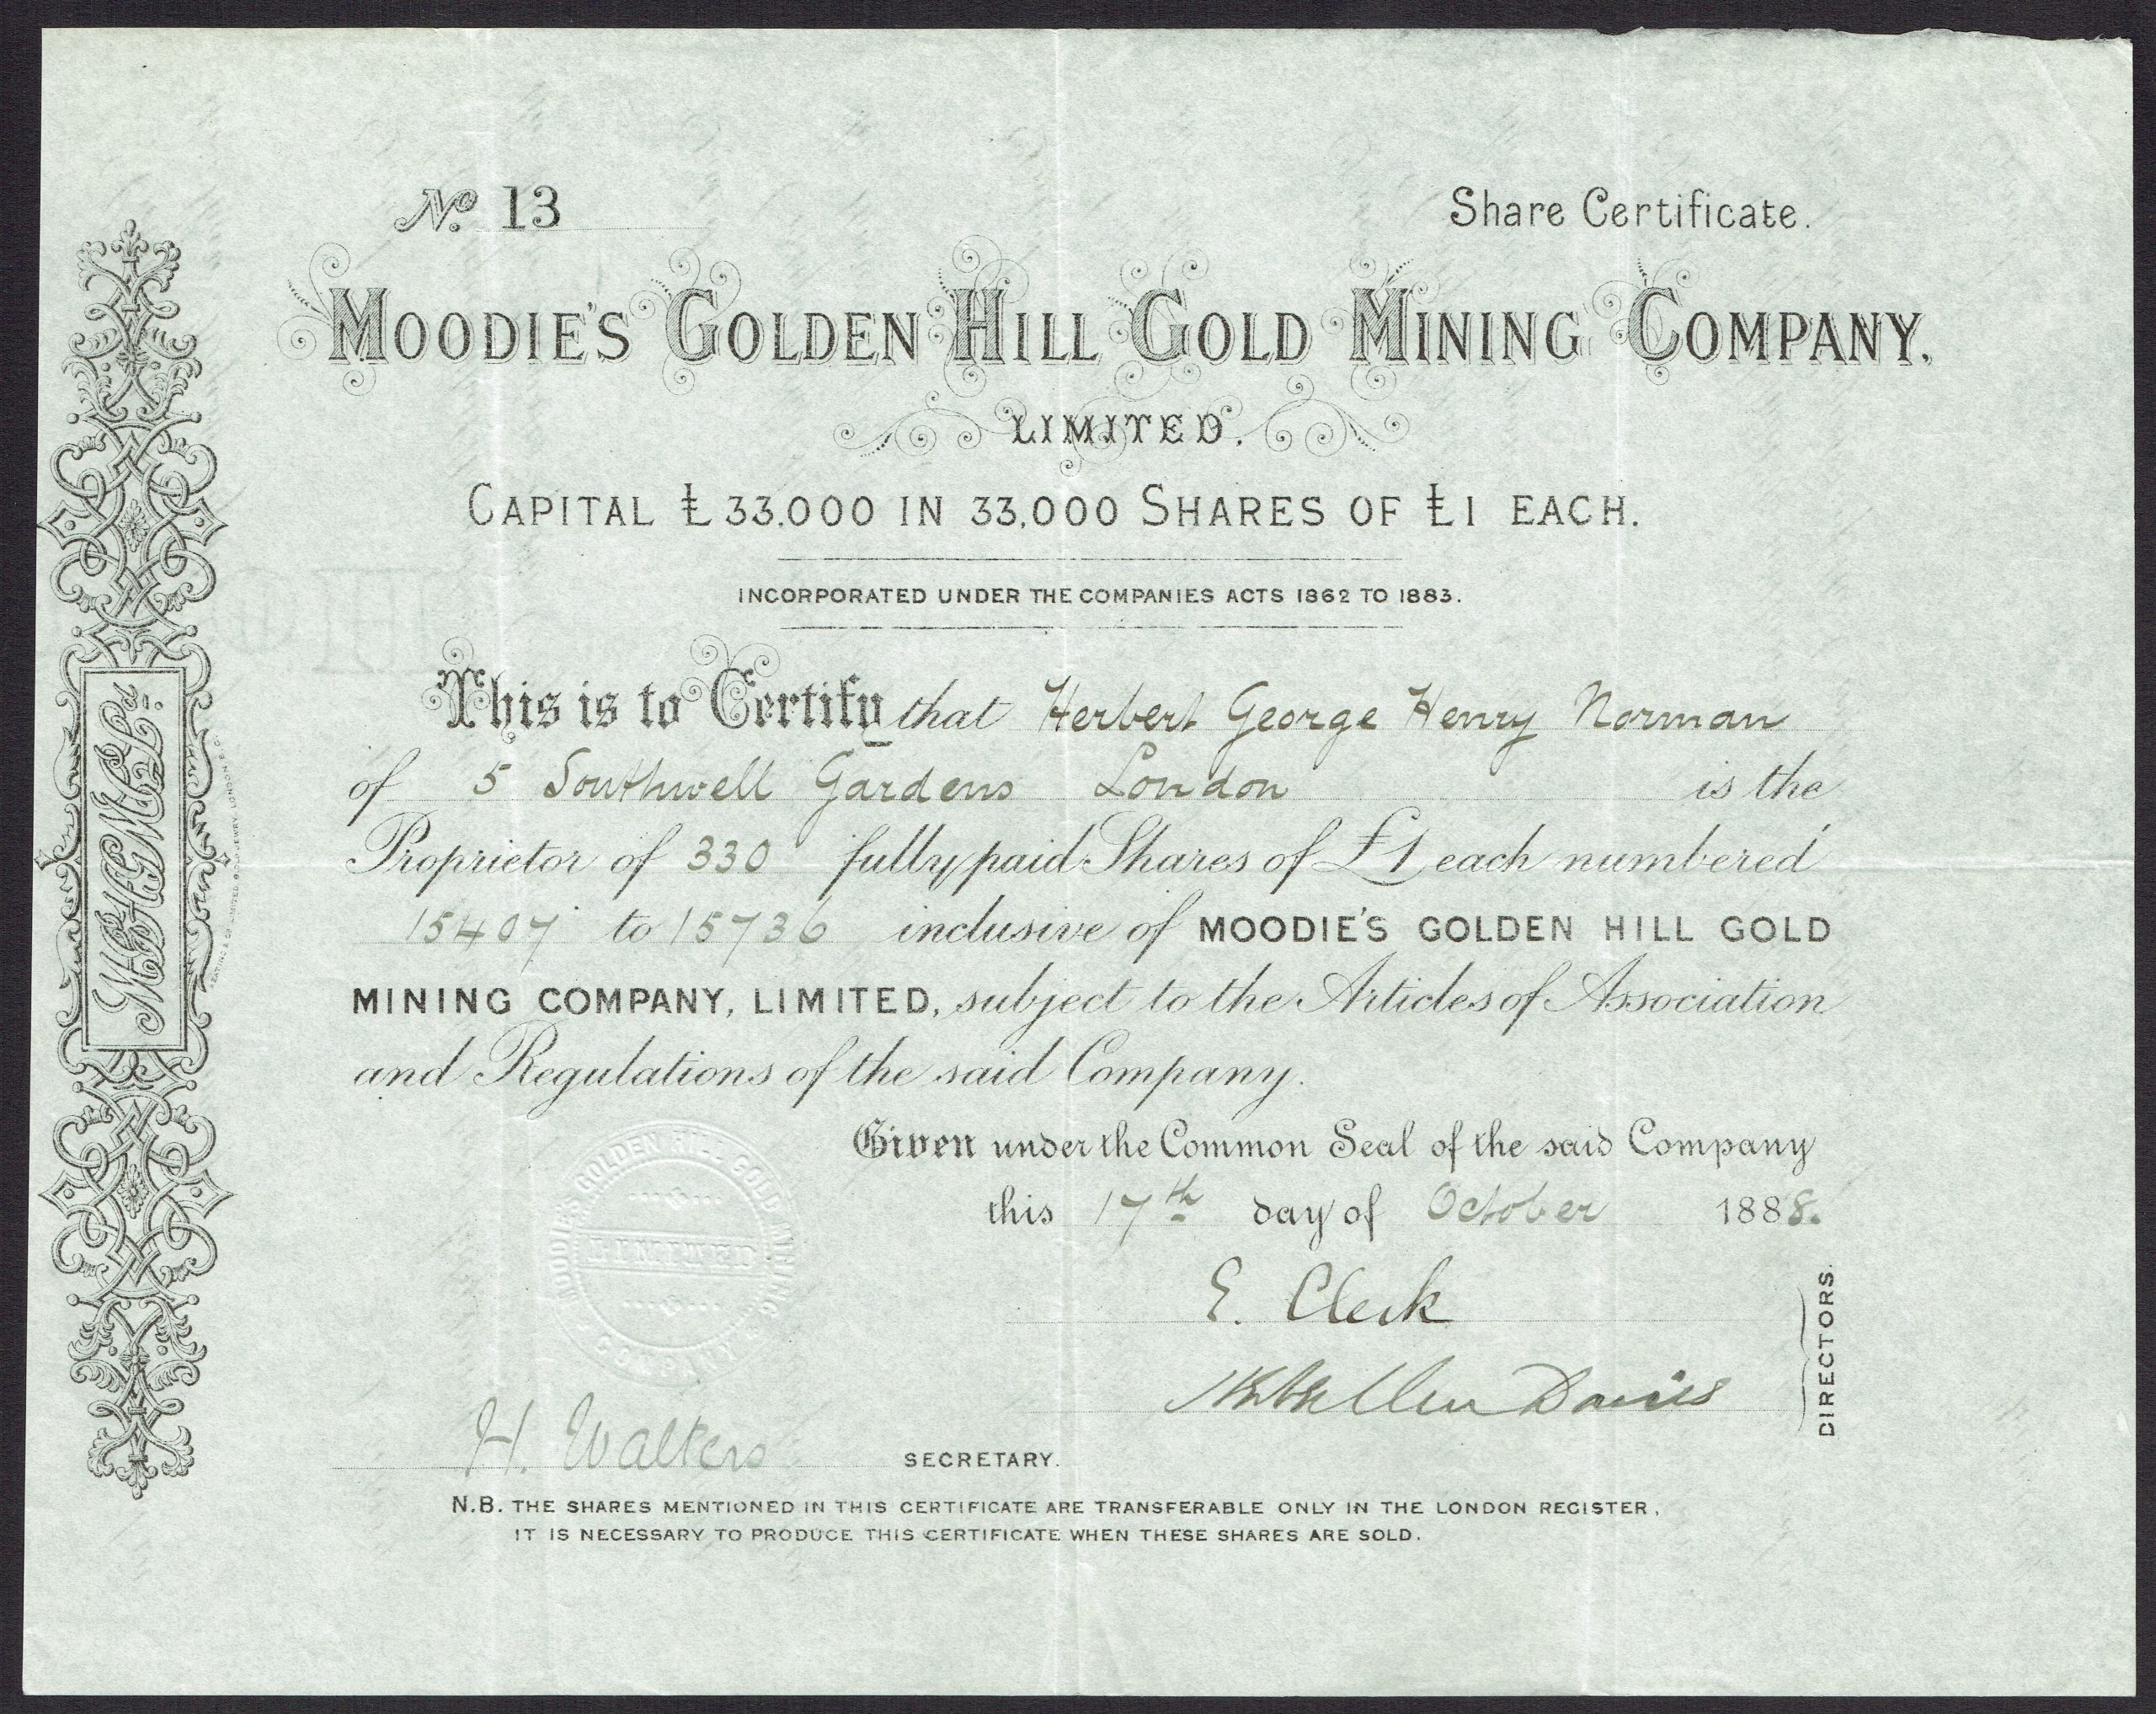 No. 13
Share Certificate.
MOODIE'S GOLDEN HILL GOLD MINING COMPANY,
LIMITED.
CAPITAL £33,000 IN 33,000 SHARES OF £1 EACH.
INCORPORATED UNDER THE COMPANIES ACTS 1862 TO 1883.
This is to Certify that Herbert George Henry Norman
of 5 Southwell Gardens London is the
Proprietor of 330 fully paid Shares of £1 each numbered
15407 to 15736 inclusive of MOODIE'S GOLDEN HILL GOLD
MINING COMPANY, LIMITED, subject to the Articles of Association
and Regulations of the said Company.
Given under the Common Seal of the said Company
this 17th day of October 1888.
MOODIE'S GOLDEN HILL GOLD MINING
LIMITED
COMPANY
E. Clerk
Davies
DIRECTORS.
H. Walters SECRETARY.
N.B. THE SHARES MENTIONED IN THIS CERTIFICATE ARE TRANSFERABLE ONLY IN THE LONDON REGISTER,
IT IS NECESSARY TO PRODUCE THIS CERTIFICATE WHEN THESE SHARES ARE SOLD.
M.G.H.G.M.C.Ld.